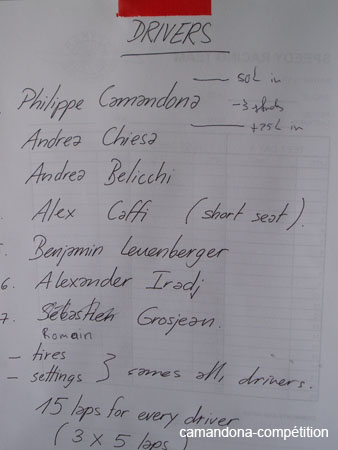 DRIVERS
50L in
Philippe Camandona
-3
+25L in
Andrea Chiesa
Andrea Belicchi
Alex Caffi (short seat).
Benjamin Leuenberger
6. Alexander Iradj
7. Sébastien Grosjean.
Romain
- tires
- settings } sames all, drivers.
15 laps for every driver
(3 x 5 laps)
camandona-compétition
SPEEDY RACING TEAM